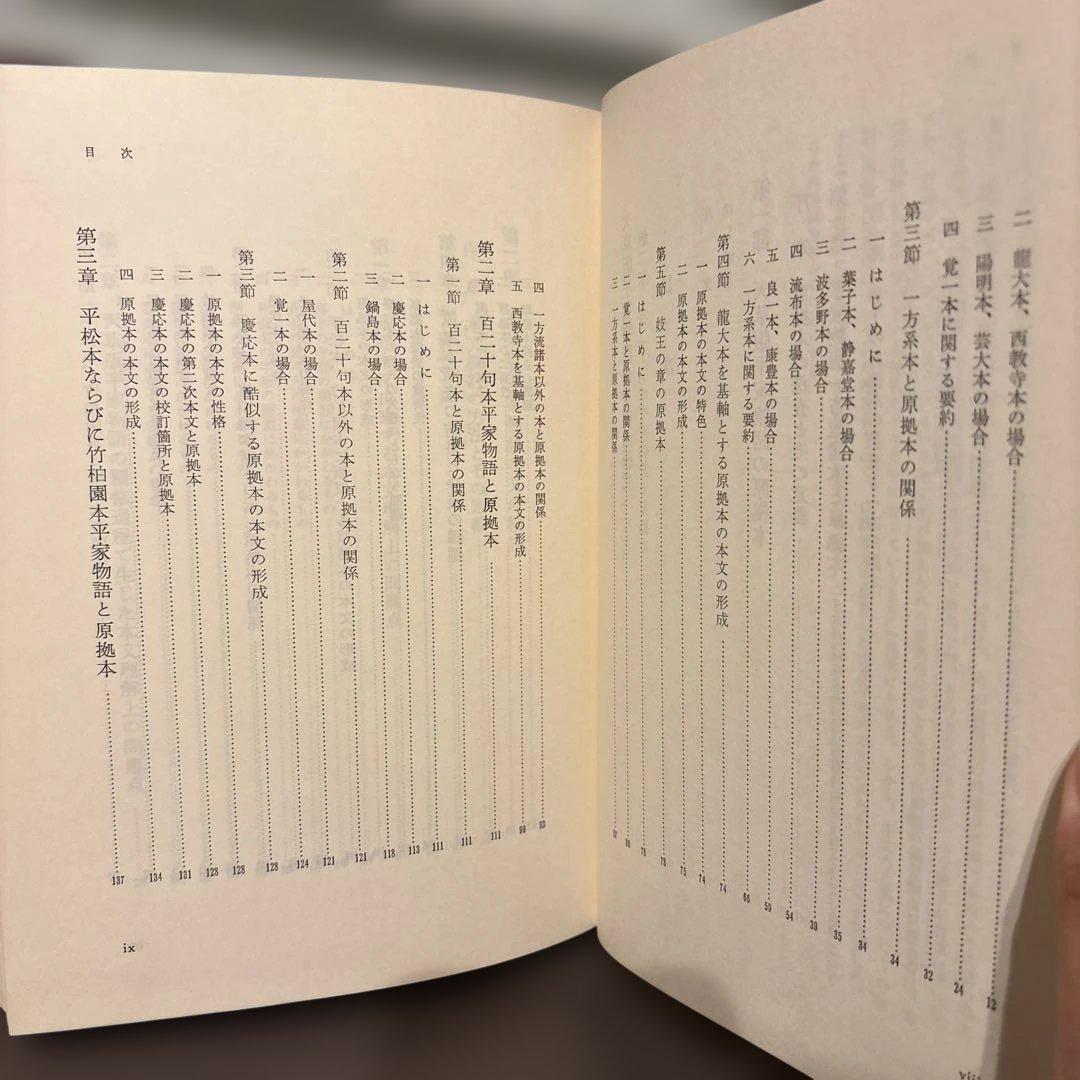 二 龍大本、西教寺本の場合 12
三 陽明本、芸大本の場合 24
四 覚一本に関する要約 32
第三節 一方系本と原拠本の関係 34
一 はじめに 34
二 葉子本、静嘉堂本の場合 35
三 波多野本の場合 39
四 流布本の場合 54
五 良一本、康豊本の場合 59
六 一方系本に関する要約 66
第四節 龍大本を基軸とする原拠本の本文の形成 74
一 原拠本の本文の特色 74
二 原拠本の本文の形成 75
第五節 妓王の章の原拠本 78
一 はじめに 78
二 覚一本と原拠本の関係
三 一方系本と原拠本の関係
viii
目次
四 一方流諸本以外の本と原拠本の関係 93
五 西教寺本を基軸とする原拠本の本文の形成 99
第二章 百二十句本平家物語と原拠本 111
第一節 百二十句本と原拠本の関係 111
一 はじめに 111
二 慶応本の場合 113
三 鍋島本の場合 118
第二節 百二十句本以外の本と原拠本の関係 121
一 屋代本の場合 121
二 覚一本の場合 124
第三節 慶応本に酷似する原拠本の本文の形成 128
一 原拠本の本文の性格 128
二 慶応本の第二次本文と原拠本 128
三 慶応本の本文の校訂箇所と原拠本 131
四 原拠本の本文の形成 134
第三章 平松本ならびに竹柏園本平家物語と原拠本 137
ix